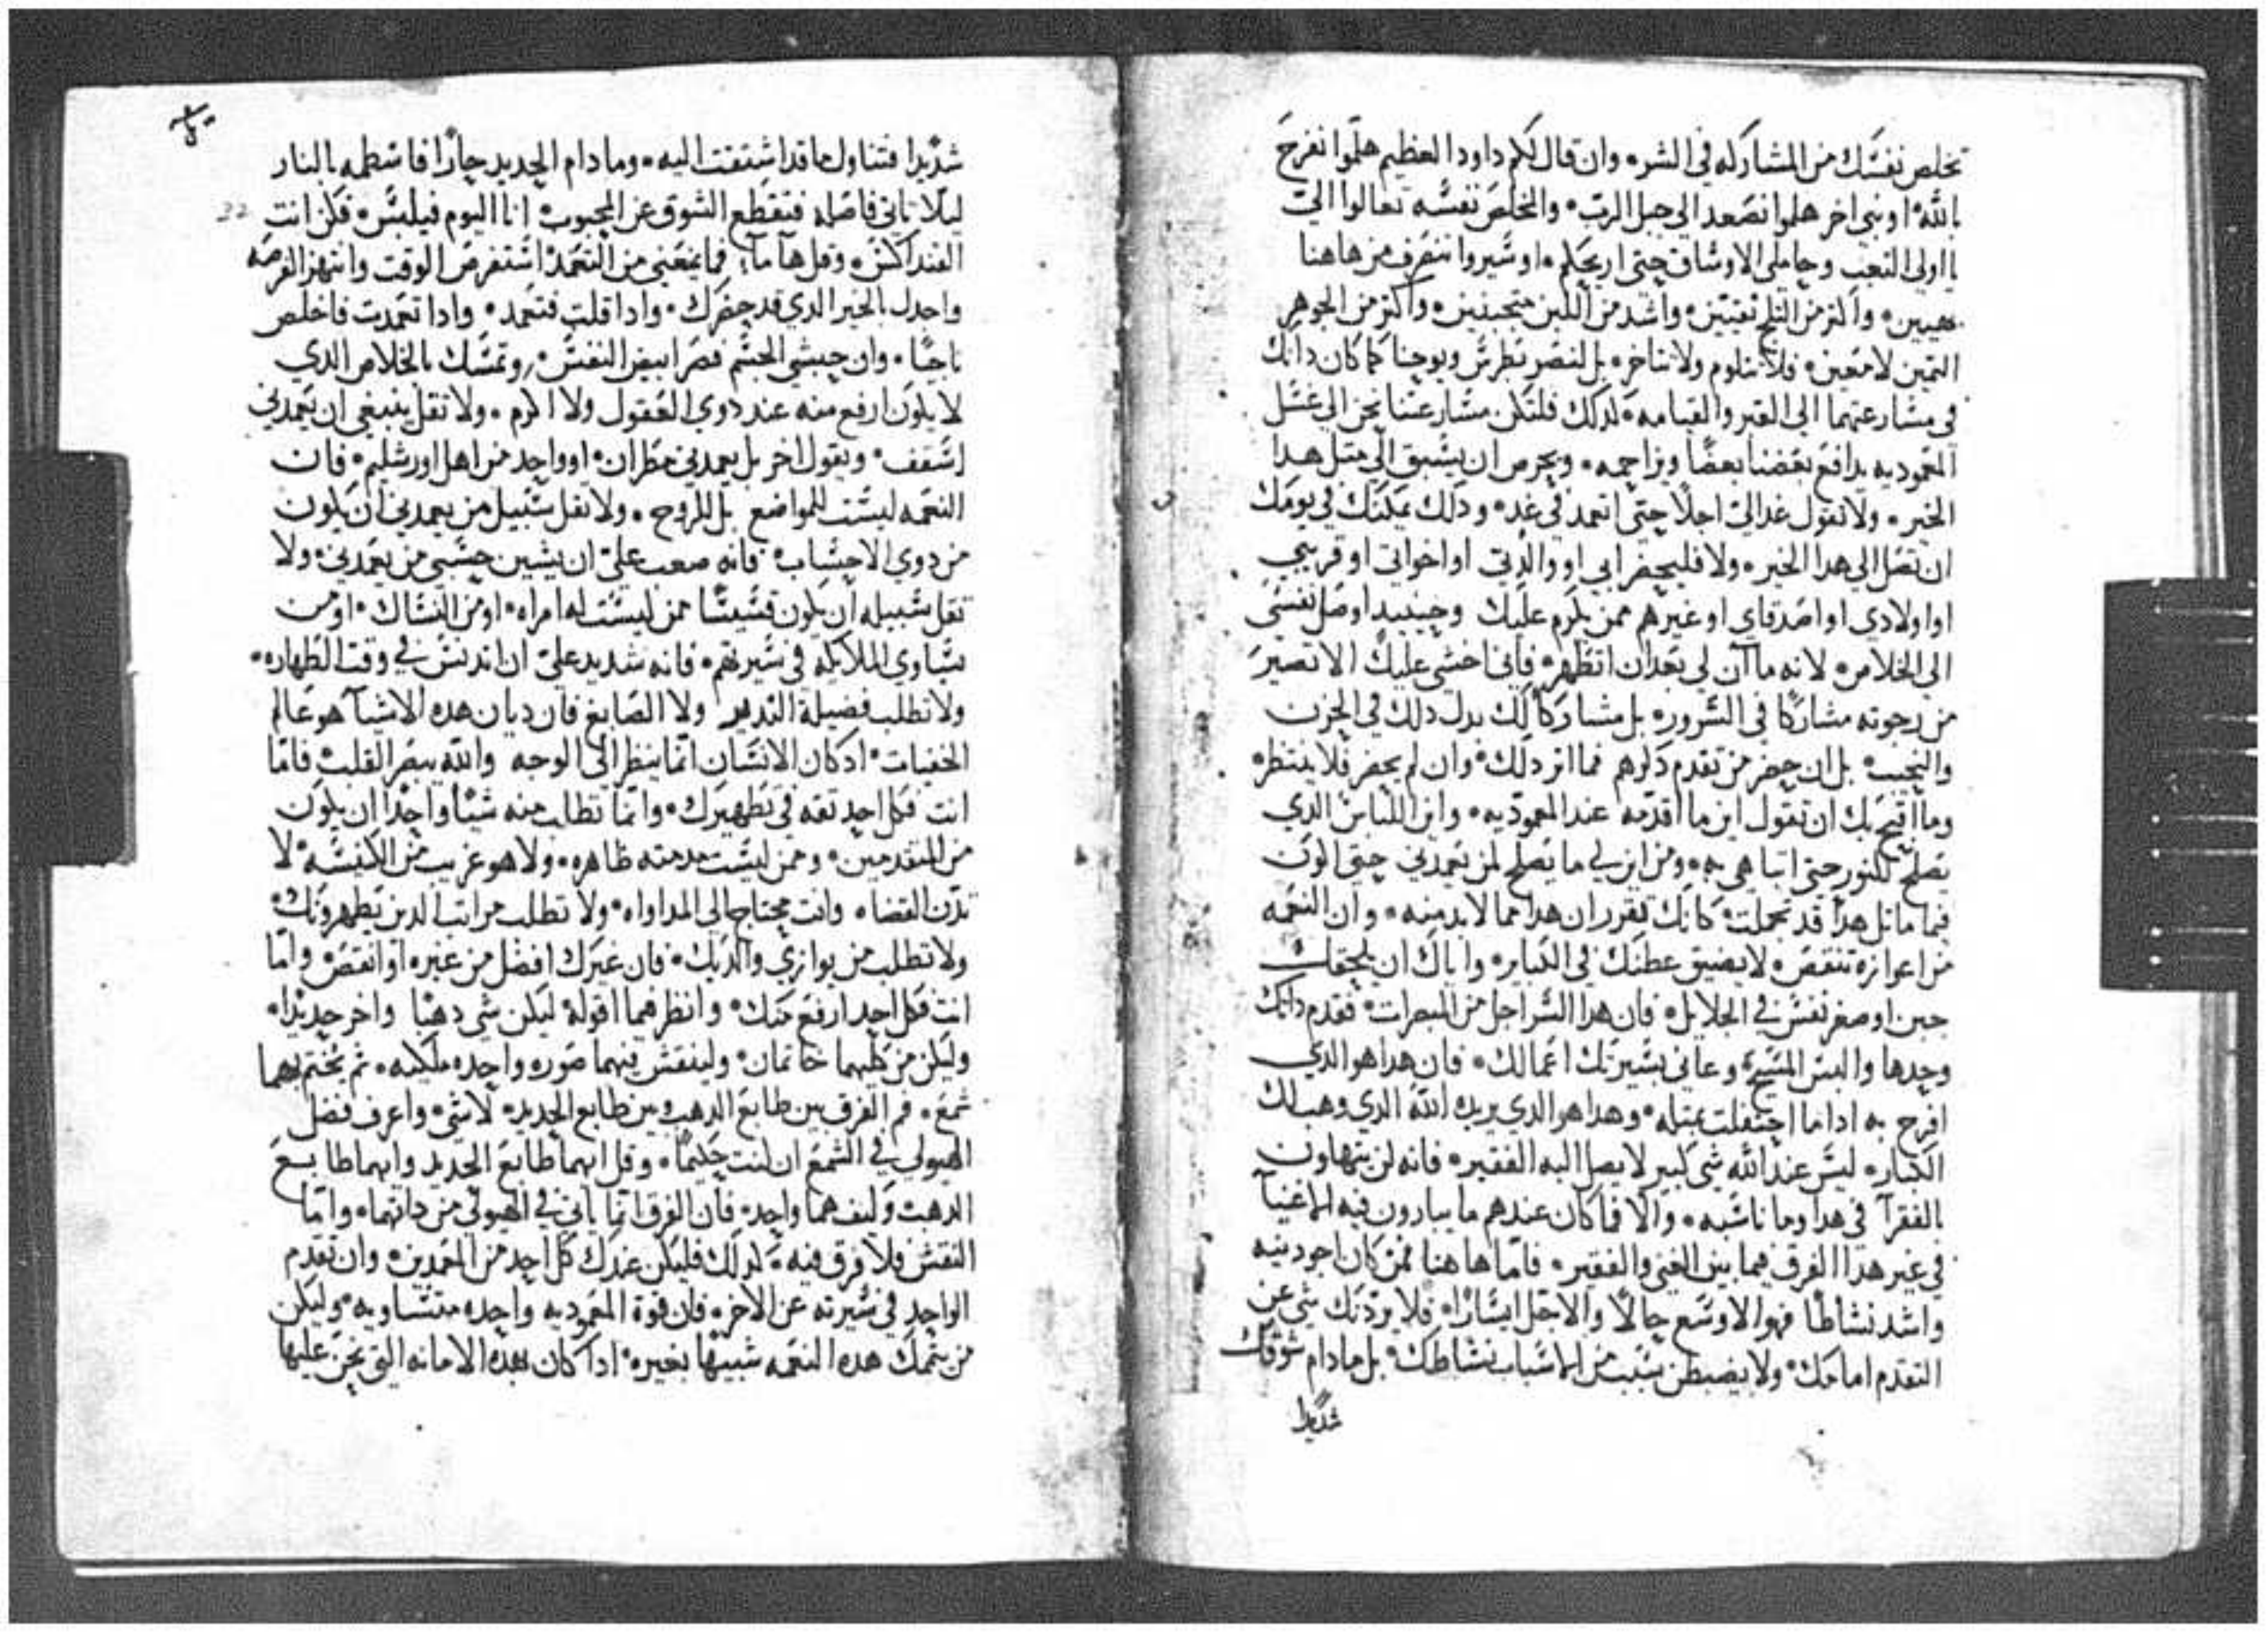 تخلص نفسك من المشاركه في الشر. وان قال لكم داود العظيم هلموا نفرح
بالله او نبي اخر هلموا نصعد الي جبل الرب. والمخلص نفسه تعالوا اليّ
يا اولي التعب وحاملي الاوساق حتى اريحكم. او سيروا ننصرف من هاهنا
بهيين. واكثر من الثلج نقيين. واشد من اللبن متجبنين. واكثر من الجوهر
الثمين لامعين. فلا نتلوم ولا نتاخر. بل لنصر بطرس ويوحنا كما كان دانك
في مسارعتهما الى القبر والقيامه. لدلك فلتكن مسارعتنا نحن الى غسل
المعموديه يدافع بعضنا بعضًا ويزاحمه. ويحرص ان يسبق الى مثل هدا
الخير. ولا تقول غدا اليّ اجلًا حتى اتعمد في غد. ودلك يمكنك في يومك
ان تصل الى هدا الخير. ولا فليحضر ابي او والدتي او اخواتي او قريبي
او اولادي او اصدقاي او غيرهم ممن يكرم عليك وحينيد اوصل نفسى
الى الخلاص. لانه ما آن لي بعد ان اتطهر. فاني اخشى عليك الا تصير
من رجوته مشاركا في السرور. بل مشاركًا لك بدل دلك في الحزن
والنحيب. بل ان حضر من تقدم دكرهم فما اثر دلك. وان لم يحضر فلا ينتظر.
وما اقبح بك ان تقول اين ما اقدمه عند المعموديه. واين اللباس الدي
يصلح للنور حتى اتباهى به. ومن اين لي ما يصلح لمن يعمدني حتى اكون
فيما ماثل هدا قد تجملت. كانك تقرر ان هدا مما لا بد منه. وان النعمه
من اعوازه تنقص. لا يضيق عطنك في الكباير. واياك ان يلحقك
جبن او صغر نفس في الجلايل. فان هدا السر اجل من المبصرات. فقدم داتك
وحدها والبس المسيح. وعاني بسيرتك اعمالك. فان هدا هو الدي
افرح به ادا ما احتفلت بمثله. وهدا هو الدي يريده الله الدي وهب لك
الكبار. ليس عند الله شي كبير لا يصل اليه الفقير. فانه لن يتهاون
بالفقرآ في هدا وما ناسبه. والا فما كان عندهم ما يبارون فيه الاغنيآ
في غير هدا الفرق فيما بين الغني والفقير. فاما هاهنا فمن كان اجود نيه
واشد نشاطًا فهو الاوسع حالًا والاجل ايسارًا. فلا يردنك شي عن
التقدم امامك. ولا يضبطن سبب من الاسباب نشاطك. بل ما دام شوقك
شديدا
شديدا فتناول ما قد اشتقت اليه. وما دام الحديد حارًا فاسطمه بالنار
ليلًا ياتي فاصله فتقطع الشوق عن المحبوب. انا اليوم فيلبس. فكن انت
القنداكس. وقل هآ مآ فما يمنعني من التعمد استفرص الوقت وانتهز الفرصه
واجدل بالخير الدي قد حضرك. وادا قلت فتعمد. وادا تعمدت فاخلص
ناجيًا. وان حبشي الجسم فصر ابيض النفس. وتمسك بالخلاص الدي
لا يكون ارفع منه عند دوي العقول ولا اكرم. ولا تقل ينبغي ان يعمدني
اسقف. ويقول اخر بل يعمدني مطران. او واحد من اهل اورشليم. فان
النعمه ليست للمواضع بل للروح. ولا تقل سبيل من يعمدني ان يكون
من دوي الاحساب. فانه صعب عليّ ان يشين حسبي من يعمدني. ولا
تقل سبيله ان يكون قسيسًا ممن ليست له امراه. او من النساك. او من
يساوي الملايكه في سيرتهم. فانه شديد عليّ ان اتدنس في وقت الطهاره.
ولا تطلب فضيلة الندير ولا الصابغ فان ديان هده الاشيآ هو عالم
الخفيات. اد كان الانسان انما ينظر الى الوجه والله يبصر القلب. فاما
انت فكل احد ثقه في تطهيرك. وانما تطلب منه شيًا واحدًا ان يكون
من المتقدمين. وممن ليست مدمته ظاهره. ولا هو غريب من الكنيسه. لا
تدن القضاه وانت محتاج الى المداواه. ولا تطلب مراتب الدين يطهرونك.
ولا تطلب من يوازي والديك. فان غيرك افضل من غيره او انقص. واما
انت فكل احد ارفع منك. وانظر فيما اقوله ليكن شي دهبا واخر حديدًا.
وليكن من كليهما خاتمان. ولينقش فيهما صوره واحده ملكيه. ثم يختم بهما
شمع. فم الفرق بين طابع الدهب وبين طابع الحديد. لا شي. واعرف فضل
الهيولى في الشمع ان كنت حكيمًا. وقل ايهما طابع الحديد وايهما طابع
الدهب وكيف هما واحد. فان الفرق انما ياتي في الهيولى من داتهما. واما
النقش فلا فرق فيه. لدلك فليكن عندك كل احد من المعمدين. وان تقدم
الواحد في سيرته عن الاخر. فان قوة المعموديه واحده متساويه. وليكن
من يتمك هده النعمه شبيهًا بغيره. ادا كان بهده الامانه التي نحن عليها